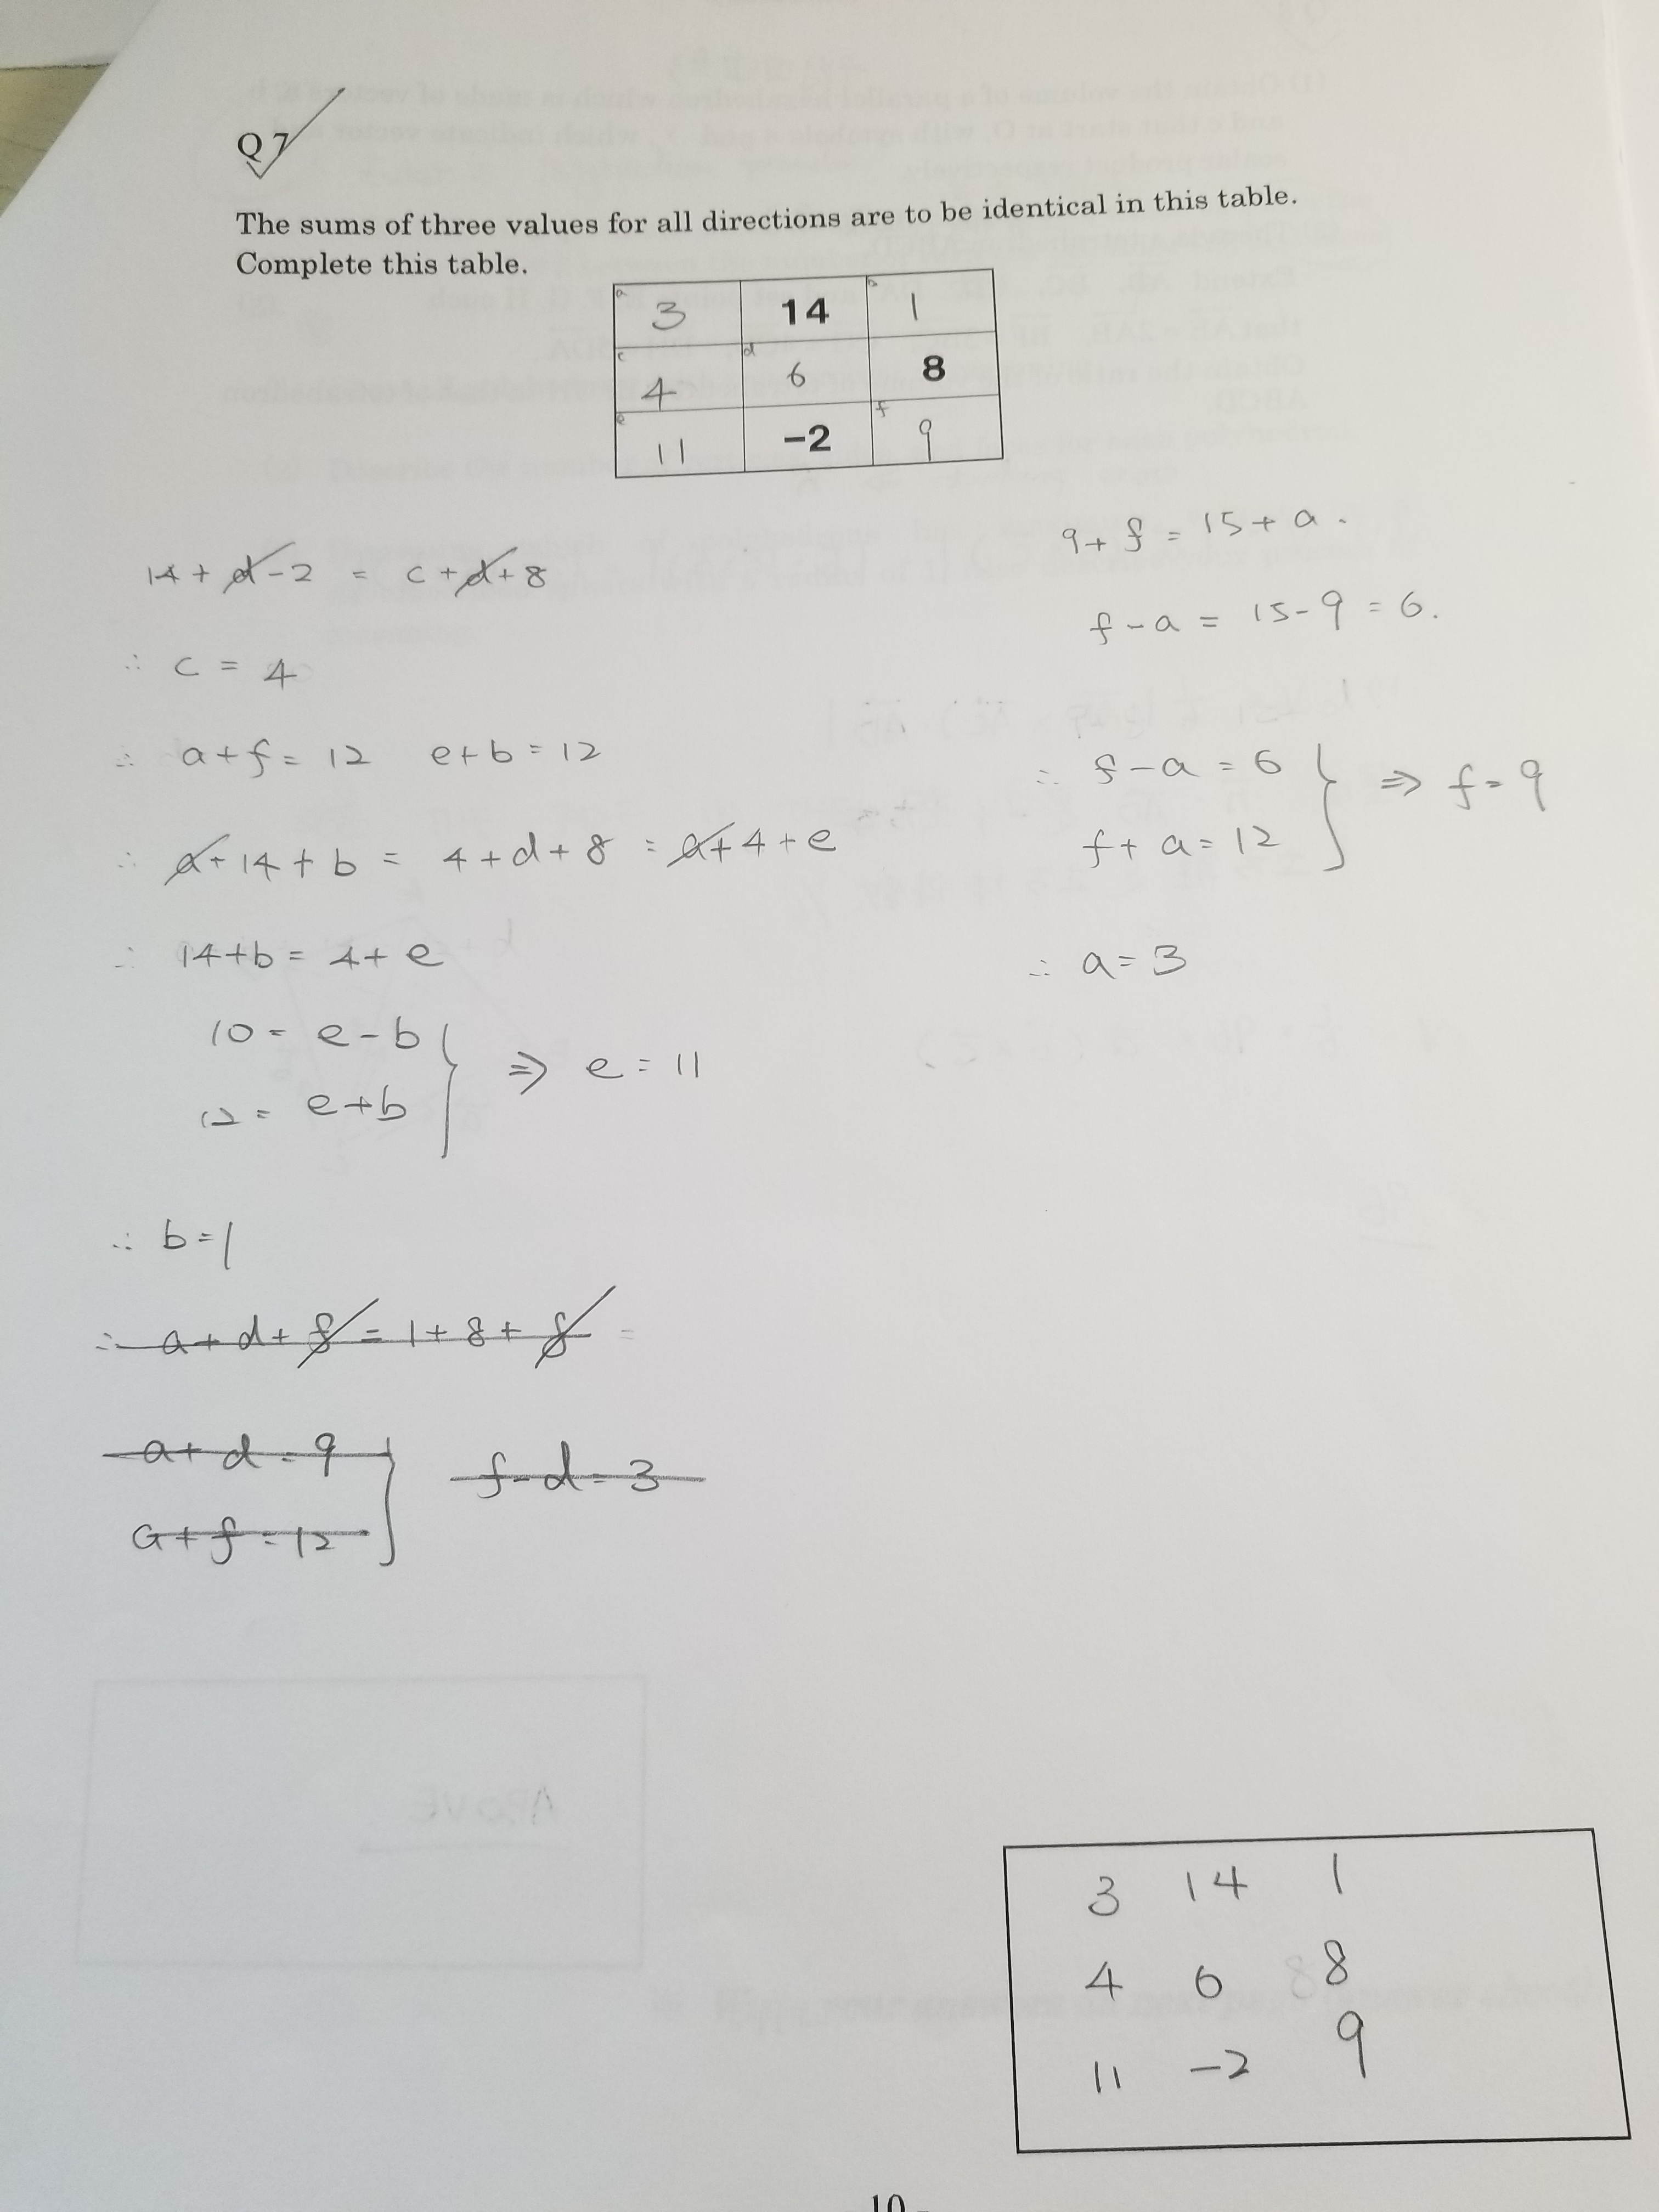 Q7
The sums of three values for all directions are to be identical in this table.
Complete this table.
a 3 14 b 1
c 4 d 6 8
e 11 -2 f 9
14 + d - 2 = c + d + 8
∴ c = 4
∴ a + f = 12 e + b = 12
∴ a + 14 + b = 4 + d + 8 = a + 4 + e
∴ 14 + b = 4 + e
10 = e - b
12 = e + b
⇒ e = 11
∴ b = 1
∴ a + d + f = 1 + 8 + f =
a + d = 9
a + f = 12
f - d = 3
9 + f = 15 + a.
f - a = 15 - 9 = 6.
∴ f - a = 6
f + a = 12
⇒ f = 9
∴ a = 3
3 14 1
4 6 8
11 -2 9
10